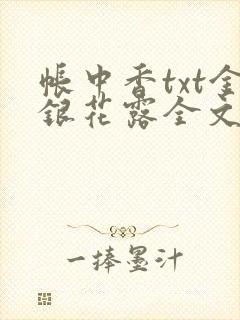 帐中香txt金
银花露全文
一捧墨汁